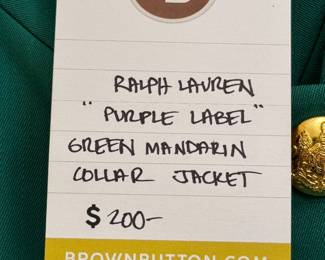 RALPH LAUREN
"PURPLE LABEL"
GREEN MANDARIN
COLLAR JACKET
$200-
BROWNBUTTON.COM